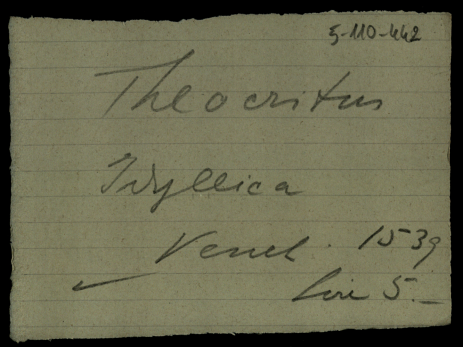 5-110-442
Theocritus
Idyllica
Venet. 1539
Lire 5.—